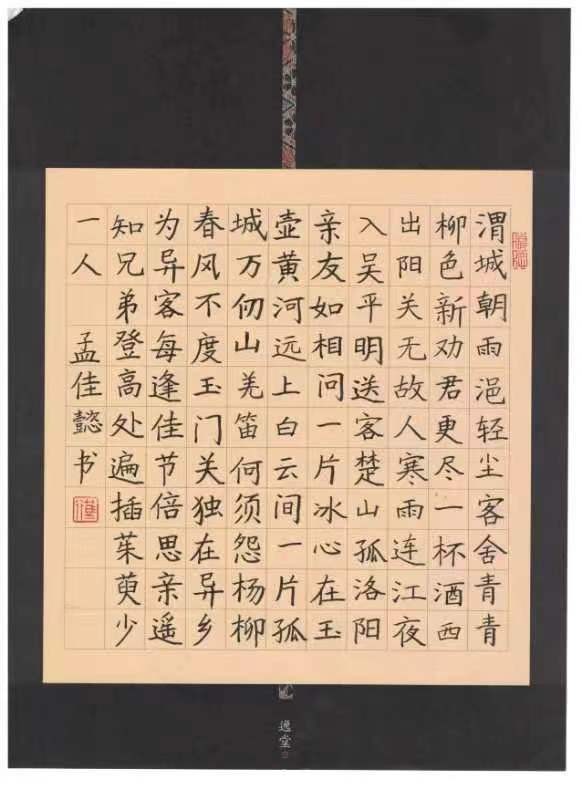 渭城朝雨浥轻尘客舍青青
柳色新劝君更尽一杯酒西
出阳关无故人寒雨连江夜
入吴平明送客楚山孤洛阳
亲友如相问一片冰心在玉
壶黄河远上白云间一片孤
城万仞山羌笛何须怨杨柳
春风不度玉门关独在异乡
为异客每逢佳节倍思亲遥
知兄弟登高处遍插茱萸少
一人 孟佳懿书
逸堂